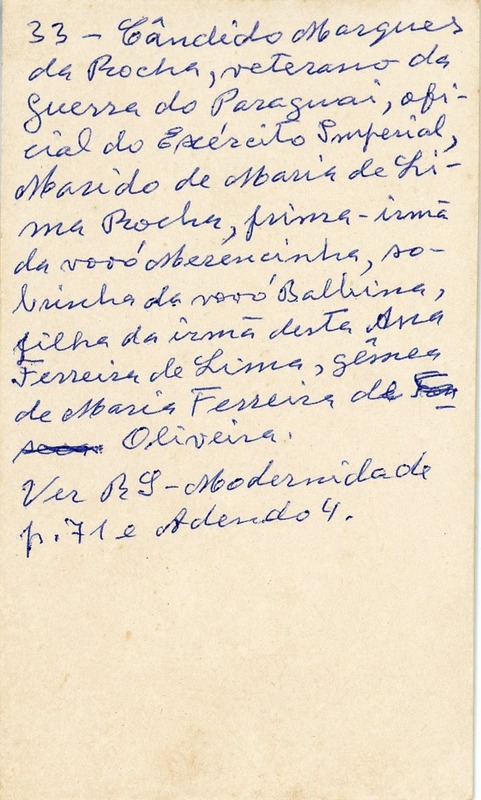 33 - Cândido Marques
da Rocha, veterano da
Guerra do Paraguai, ofi-
cial do Exército Imperial,
Marido de Maria de Li-
ma Rocha, prima-irmã
da vovó Merencinha, so-
brinha da vovó Balbina,
filha da irmã desta Ana
Ferreira de Lima, gêmea
de Maria Ferreira de Fon
seca. Oliveira.
Ver RS - Modernidade
p. 71 e Adendo 4.